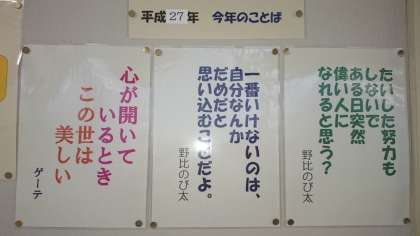 平成27年 今年のことば
たいした努力も
しないで
ある日突然
偉い人に
なれると思う?
野比のび太
一番いけないのは、
自分なんか
だめだと
思い込むことだよ。
野比のび太
心が開いて
いるとき
この世は
美しい
ゲーテ